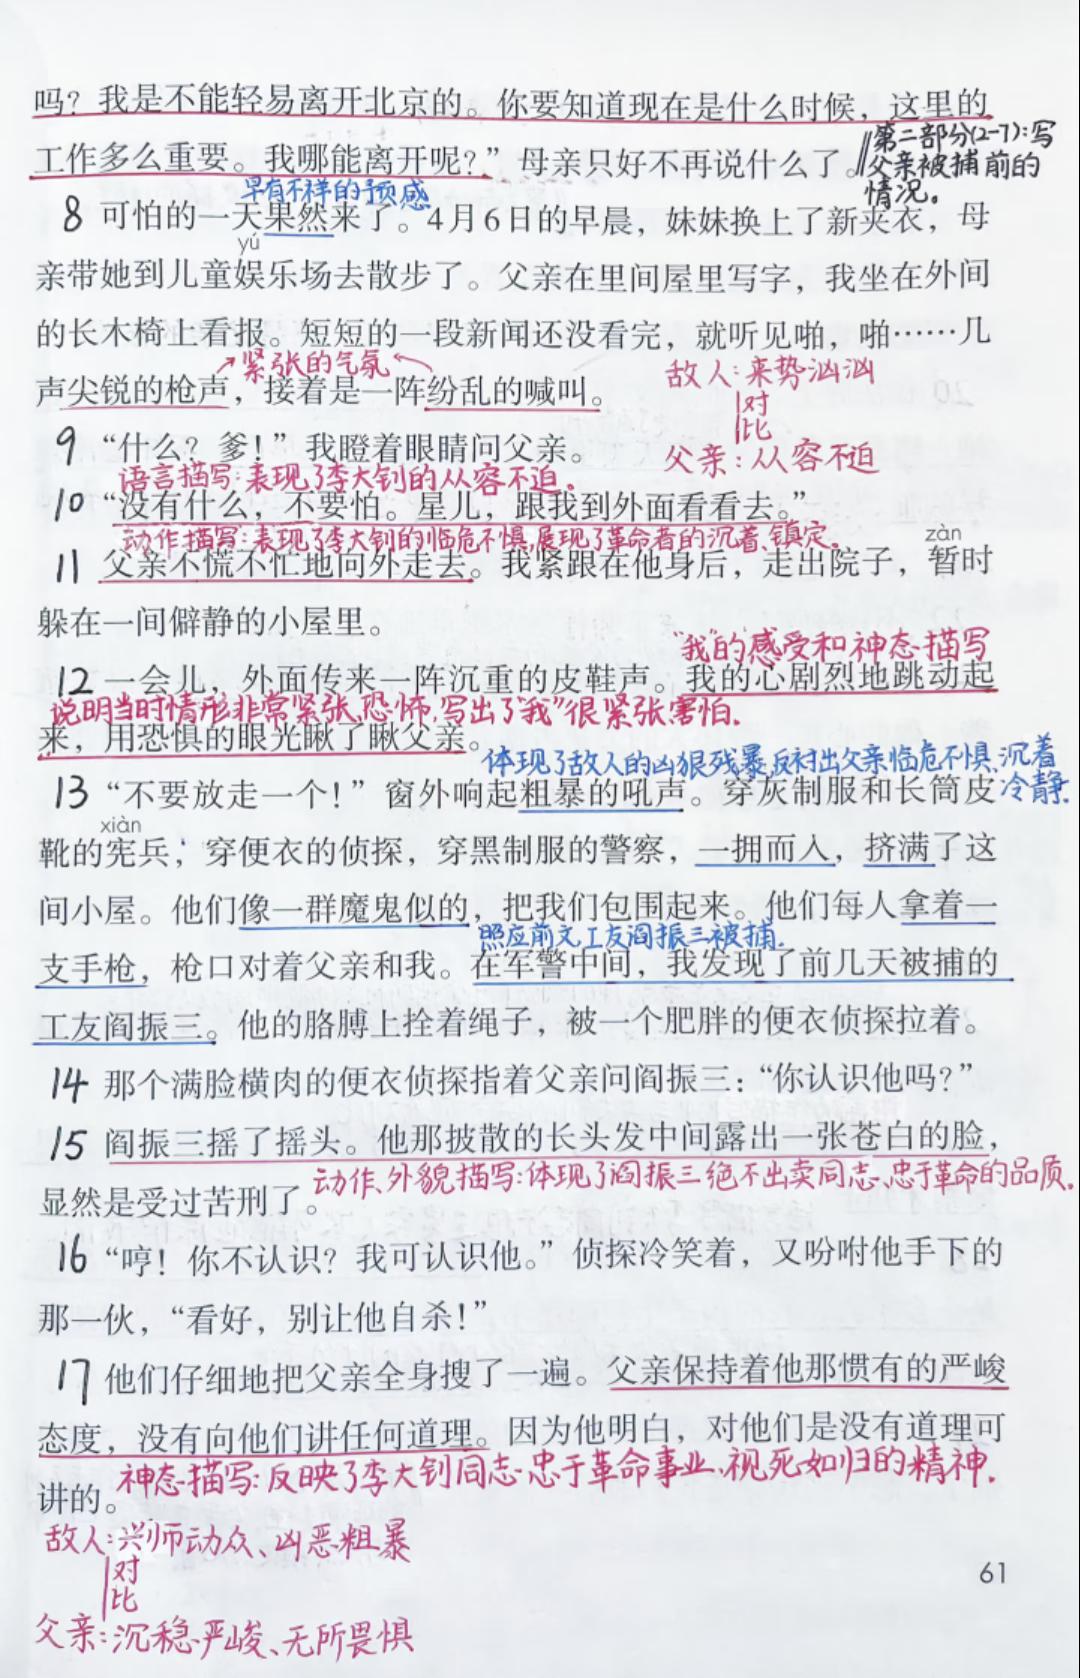 吗？我是不能轻易离开北京的。你要知道现在是什么时候，这里的
工作多么重要。我哪能离开呢？”母亲只好不再说什么了。
第二部分(2-7)：写
父亲被捕前的
情况。
早有不祥的预感
8 可怕的一天果然来了。4月6日的早晨，妹妹换上了新夹衣，母
yú
亲带她到儿童娱乐场去散步了。父亲在里间屋里写字，我坐在外间
的长木椅上看报。短短的一段新闻还没看完，就听见啪，啪……几
紧张的气氛
声尖锐的枪声，接着是一阵纷乱的喊叫。
敌人：来势汹汹
对
比
父亲：从容不迫
9 “什么？爹！”我瞪着眼睛问父亲。
语言描写：表现了李大钊的从容不迫。
10 “没有什么，不要怕。星儿，跟我到外面看看去。”
动作描写：表现了李大钊的临危不惧，展现了革命者的沉着、镇定。
zàn
11 父亲不慌不忙地向外走去。我紧跟在他身后，走出院子，暂时
躲在一间僻静的小屋里。
“我”的感受和神态描写
12 一会儿，外面传来一阵沉重的皮鞋声。我的心剧烈地跳动起
说明当时情形非常紧张、恐怖，写出了“我”很紧张害怕.
来，用恐惧的眼光瞅了瞅父亲。
体现了敌人的凶狠残暴,反衬出父亲临危不惧、沉着
冷静.
13 “不要放走一个！”窗外响起粗暴的吼声。穿灰制服和长筒皮
xiàn
靴的宪兵，穿便衣的侦探，穿黑制服的警察，一拥而入，挤满了这
间小屋。他们像一群魔鬼似的，把我们包围起来。他们每人拿着一
照应前文工友阎振三被捕.
支手枪，枪口对着父亲和我。在军警中间，我发现了前几天被捕的
工友阎振三。他的胳膊上拴着绳子，被一个肥胖的便衣侦探拉着。
14 那个满脸横肉的便衣侦探指着父亲问阎振三：“你认识他吗？”
15 阎振三摇了摇头。他那披散的长头发中间露出一张苍白的脸，
动作、外貌描写：体现了阎振三绝不出卖同志、忠于革命的品质.
显然是受过苦刑了。
16 “哼！你不认识？我可认识他。”侦探冷笑着，又吩咐他手下的
那一伙，“看好，别让他自杀！”
17 他们仔细地把父亲全身搜了一遍。父亲保持着他那惯有的严峻
态度，没有向他们讲任何道理。因为他明白，对他们是没有道理可
神态描写：反映了李大钊同志忠于革命事业、视死如归的精神.
讲的。
敌人：兴师动众、凶恶粗暴
对
比
父亲：沉稳严峻、无所畏惧
61